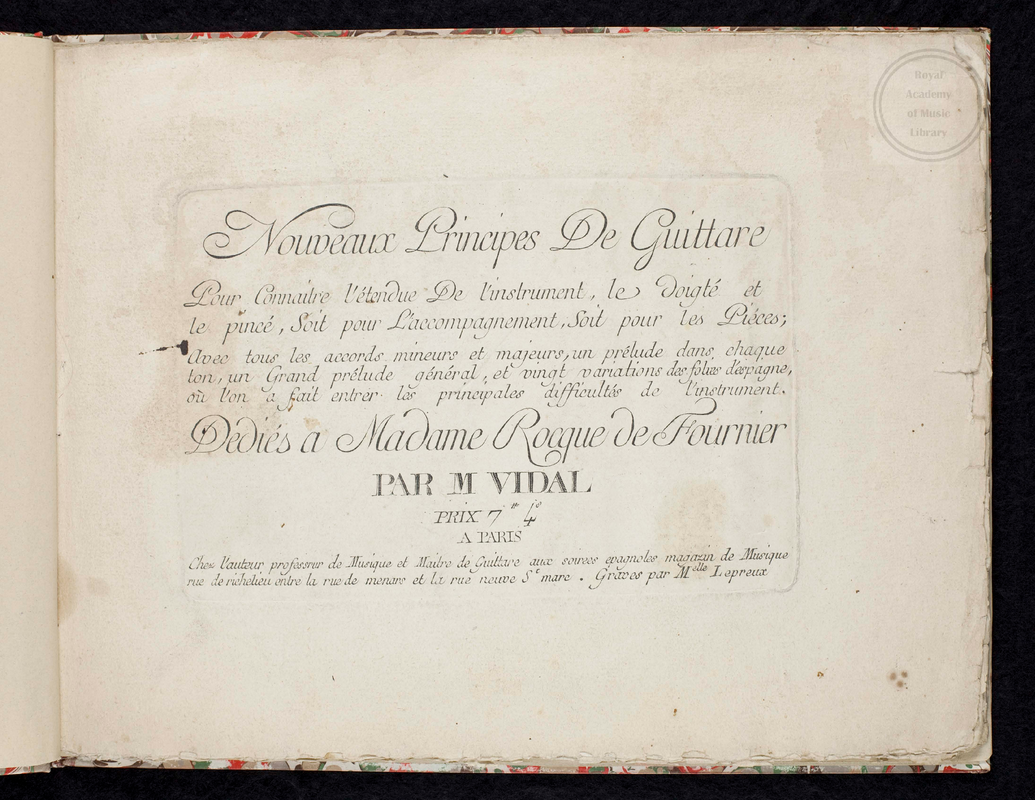 Nouveaux Principes De Guittare
Pour Connaitre l'étendue De l'instrument, le doigté et
le pincé, Soit pour L'accompagnement, Soit pour les Piéces;
Avec tous les accords mineurs et majeurs, un prélude dans chaque
ton, un Grand prélude général, et vingt variations des folies d'espagne,
où l'on a fait entrer les principales difficultés de l'instrument.
Dédiés a Madame Rocque de Fournier
PAR M VIDAL
PRIX 7tt 4s
A PARIS
Chez l'auteur professeur de Musique et Maitre de Guittare aux soirees epagnoles magazin de Musique
rue de richelieu entre la rue de menars et la rue neuve St marc. Gravés par Melle Lepreux
Royal
Academy
of Music
Library